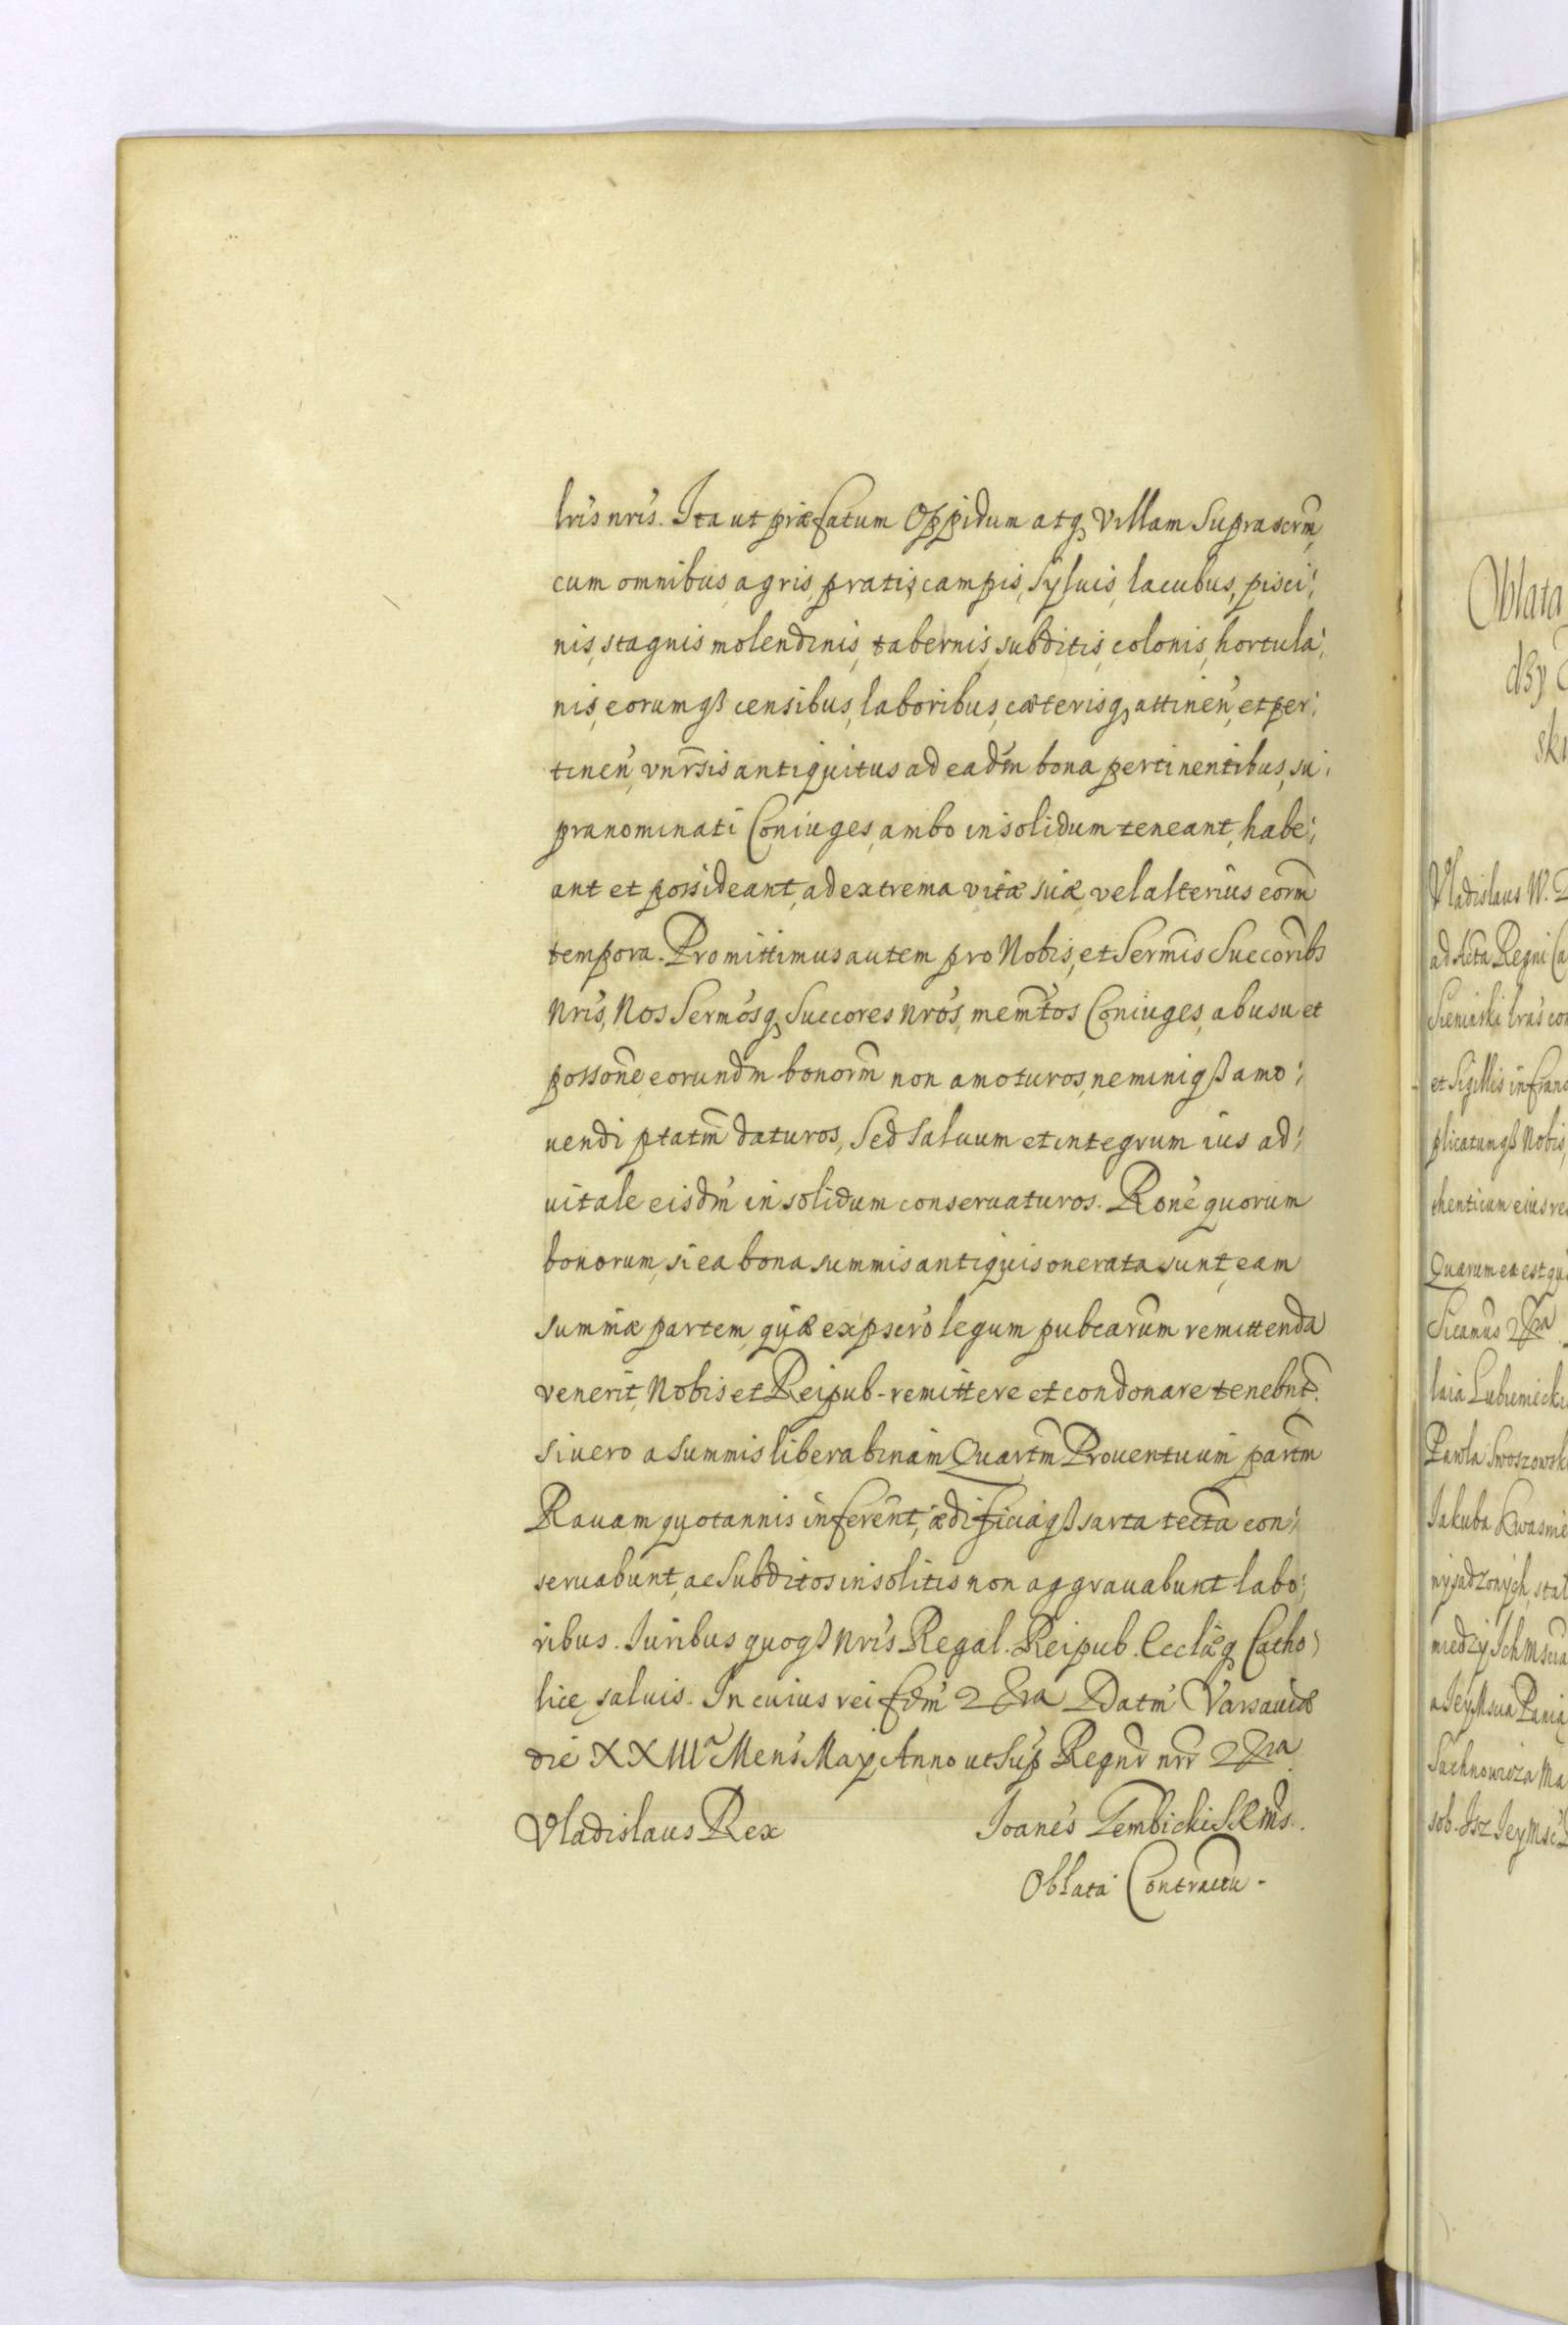 lris nris. Ita ut præfatum Oppidum atq Villam Suprascrm,
cum omnibus agris, pratis, campis, Sylvis, lacubus, pisci:
nis, stagnis molendinis, tabernis, subditis, colonis, hortula:
nis, eorumqß censibus, laboribus, cæterisq, attinen, et per:
tinen, vnrsis antiquitus ad eadm bona pertinentibus, su:
pranominati Coniuges, ambo insolidum teneant, habe:
ant et possideant, ad extrema vitæ suæ, vel alterius eorm
tempora. Promittimus autem pro Nobis, et Sermis Succoribs
Nris, Nos Sermosq, Succores Nros, memtos Coniuges, ab usu et
possone eorundm bonorm non amoturos, neminiqß amo:
uendi ptatm daturos, Sed Saluum et integrum ius ad:
uitale eisdm in solidum conseruaturos. Rone quorum
bonorum, si ea bona summis antiquis onerata sunt, eam
summæ partem, quæ ex pscro legum pubcarum remittenda
venerit, Nobis et Reipub. remittere et condonare tenebnt.
Si uero a Summis libera binam Quartm Prouentuum partm
Rauam quotannis inferent, ædificiaqß sarta tecta con:
seruabunt, ac Subditos insolitis non aggrauabunt labo:
ribus. Iuribus quoqß Nris Regal. Reipub. Ecclæq Catho:
lice saluis. In cuius rei fdm &ra Datm Varsauiæ
die XXIII Mens May Anno ut Sup Regnr nrr &ra.
Vladislaus Rex
Joanes Gembicki SRMs.
Oblata Contractu.
Oblata
dzy
sk
Vladislaus W.
ad Acta Regni Ca
Sieninski lras con
et Sigillis infran
plicatumqß Nobis,
thenticum eius re
Quarum ea est
Sicanus &ra
laia Lubieniecki
Pawla Swoszowsk
Jakuba Kwasnie
nysadzonych, stal
miedzy Ichmscia
a JeyMscia Pania
Sachnowicza Ma
sob. Isz JeyMsc